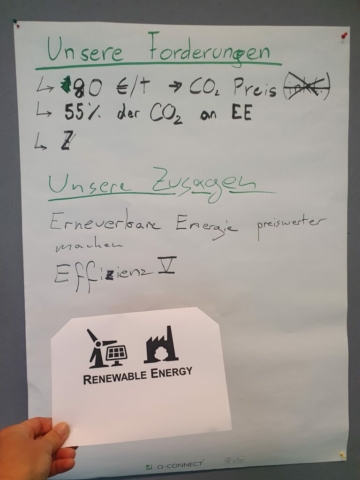 Unsere Forderungen
↳ 80 €/t → CO₂ Preis
↳ 55% der CO₂ an EE
↳ Z
Unsere Zusagen
Erneuerbare Energie preiswerter
machen
Effizienz V
RENEWABLE ENERGY
Q-CONNECT